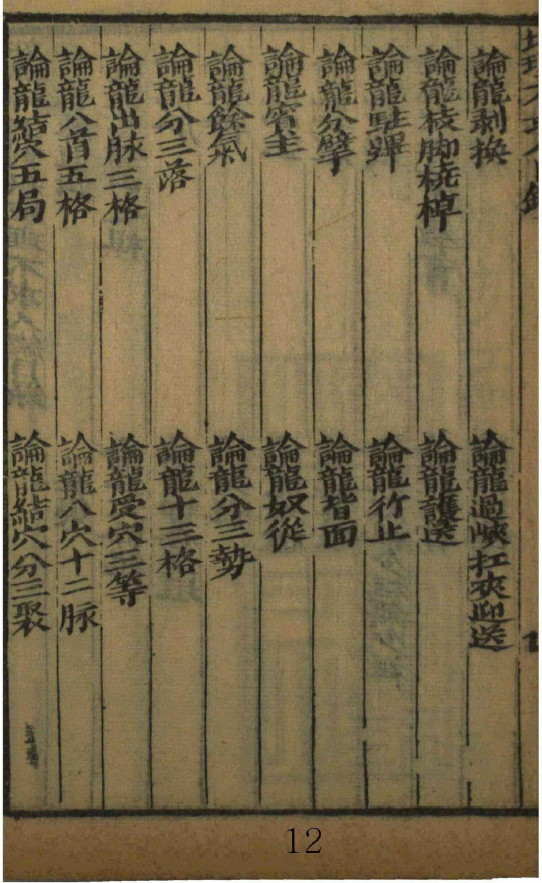 論龍剥换　論龍過峽扛夾迎送
論龍枝脚橈棹　論龍護送
論龍駐蹕　論龍行止
論龍分擘　論龍背面
論龍賓主　論龍奴從
論龍餘氣　論龍分三勢
論龍分三落　論龍十二格
論龍出脉三格　論龍受穴三等
論龍入首五格　論龍入穴十二脉
論龍結穴五局　論龍結穴分三聚
12